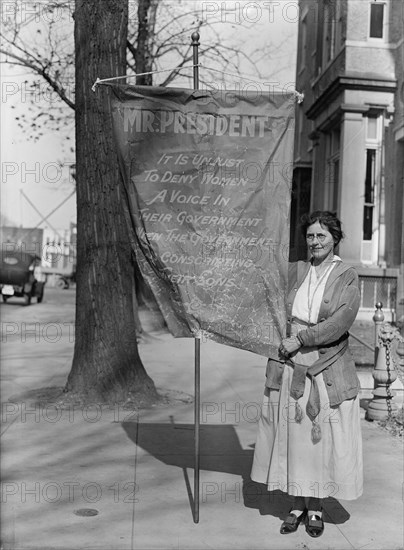 MR. PRESIDENT
IT IS UNJUST
TO DENY WOMEN
A VOICE IN
THEIR GOVERNMENT
WHEN THE GOVERNMENT
CONSCRIPTING
THEIR SONS.